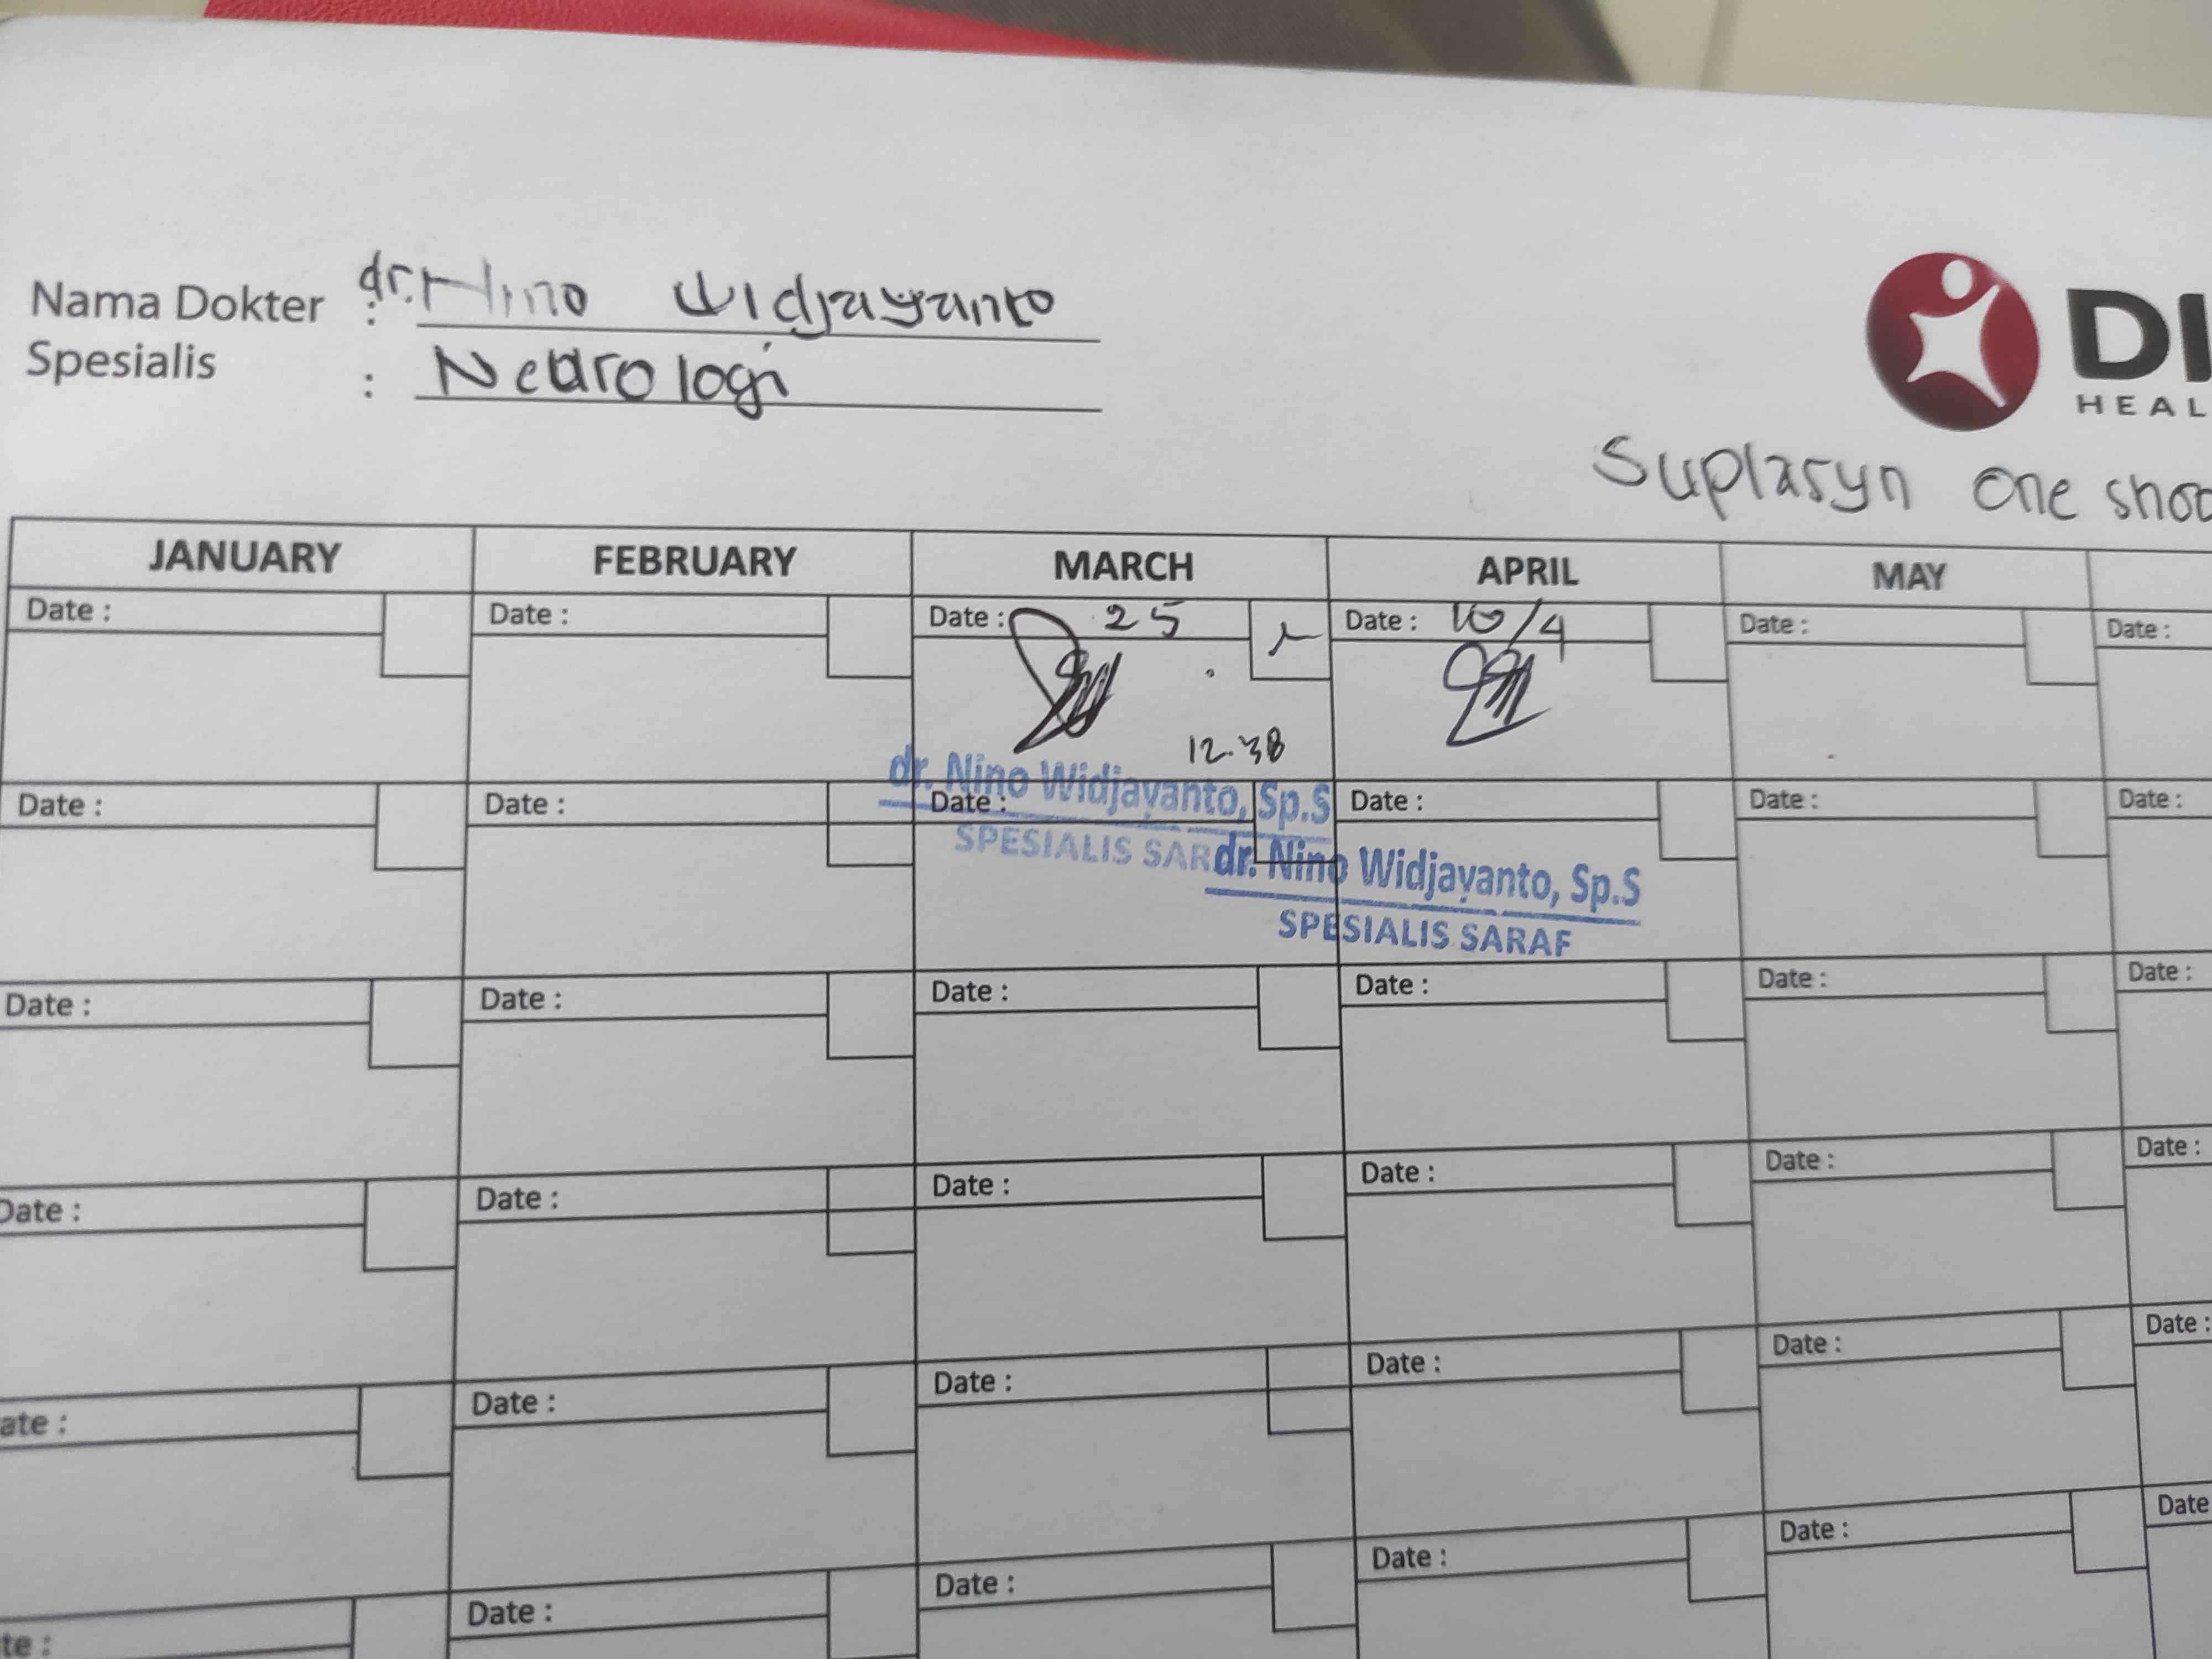 Nama Dokter : dr. Nino Widjayanto
Spesialis : Neurologi
DI
HEAL
Suplasyn one shoo
JANUARY FEBRUARY MARCH APRIL MAY
Date : Date : Date : 25 Date : 10/4 Date : Date :
12.38
dr. Nino Widjayanto, Sp.S
Date : Date : Date : Date : Date : Date :
SPESIALIS SAR
dr. Nino Widjayanto, Sp.S
SPESIALIS SARAF
Date : Date : Date : Date : Date : Date :
Date : Date : Date : Date : Date : Date :
ate : Date : Date : Date : Date : Date :
te : Date : Date : Date : Date : Date